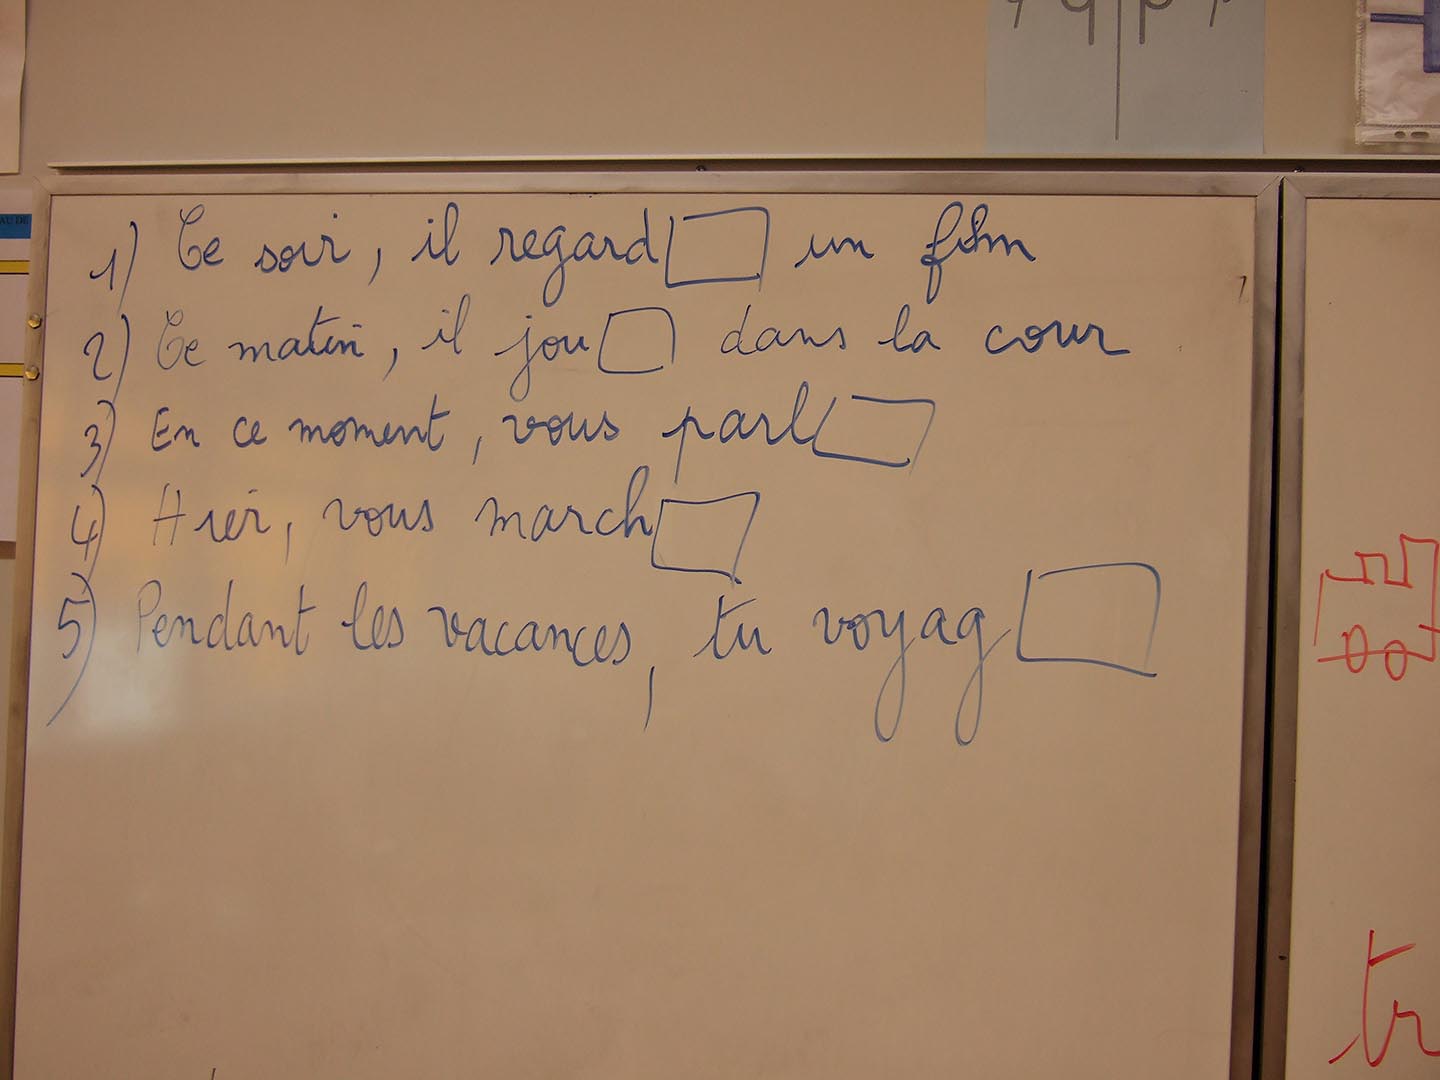 q p
AU DE
1) Ce soir, il regard□ un film
2) Ce matin, il jou□ dans la cour
3) En ce moment, vous parl□
4) Hier, vous march□
5) Pendant les vacances, tu voyag□
tr